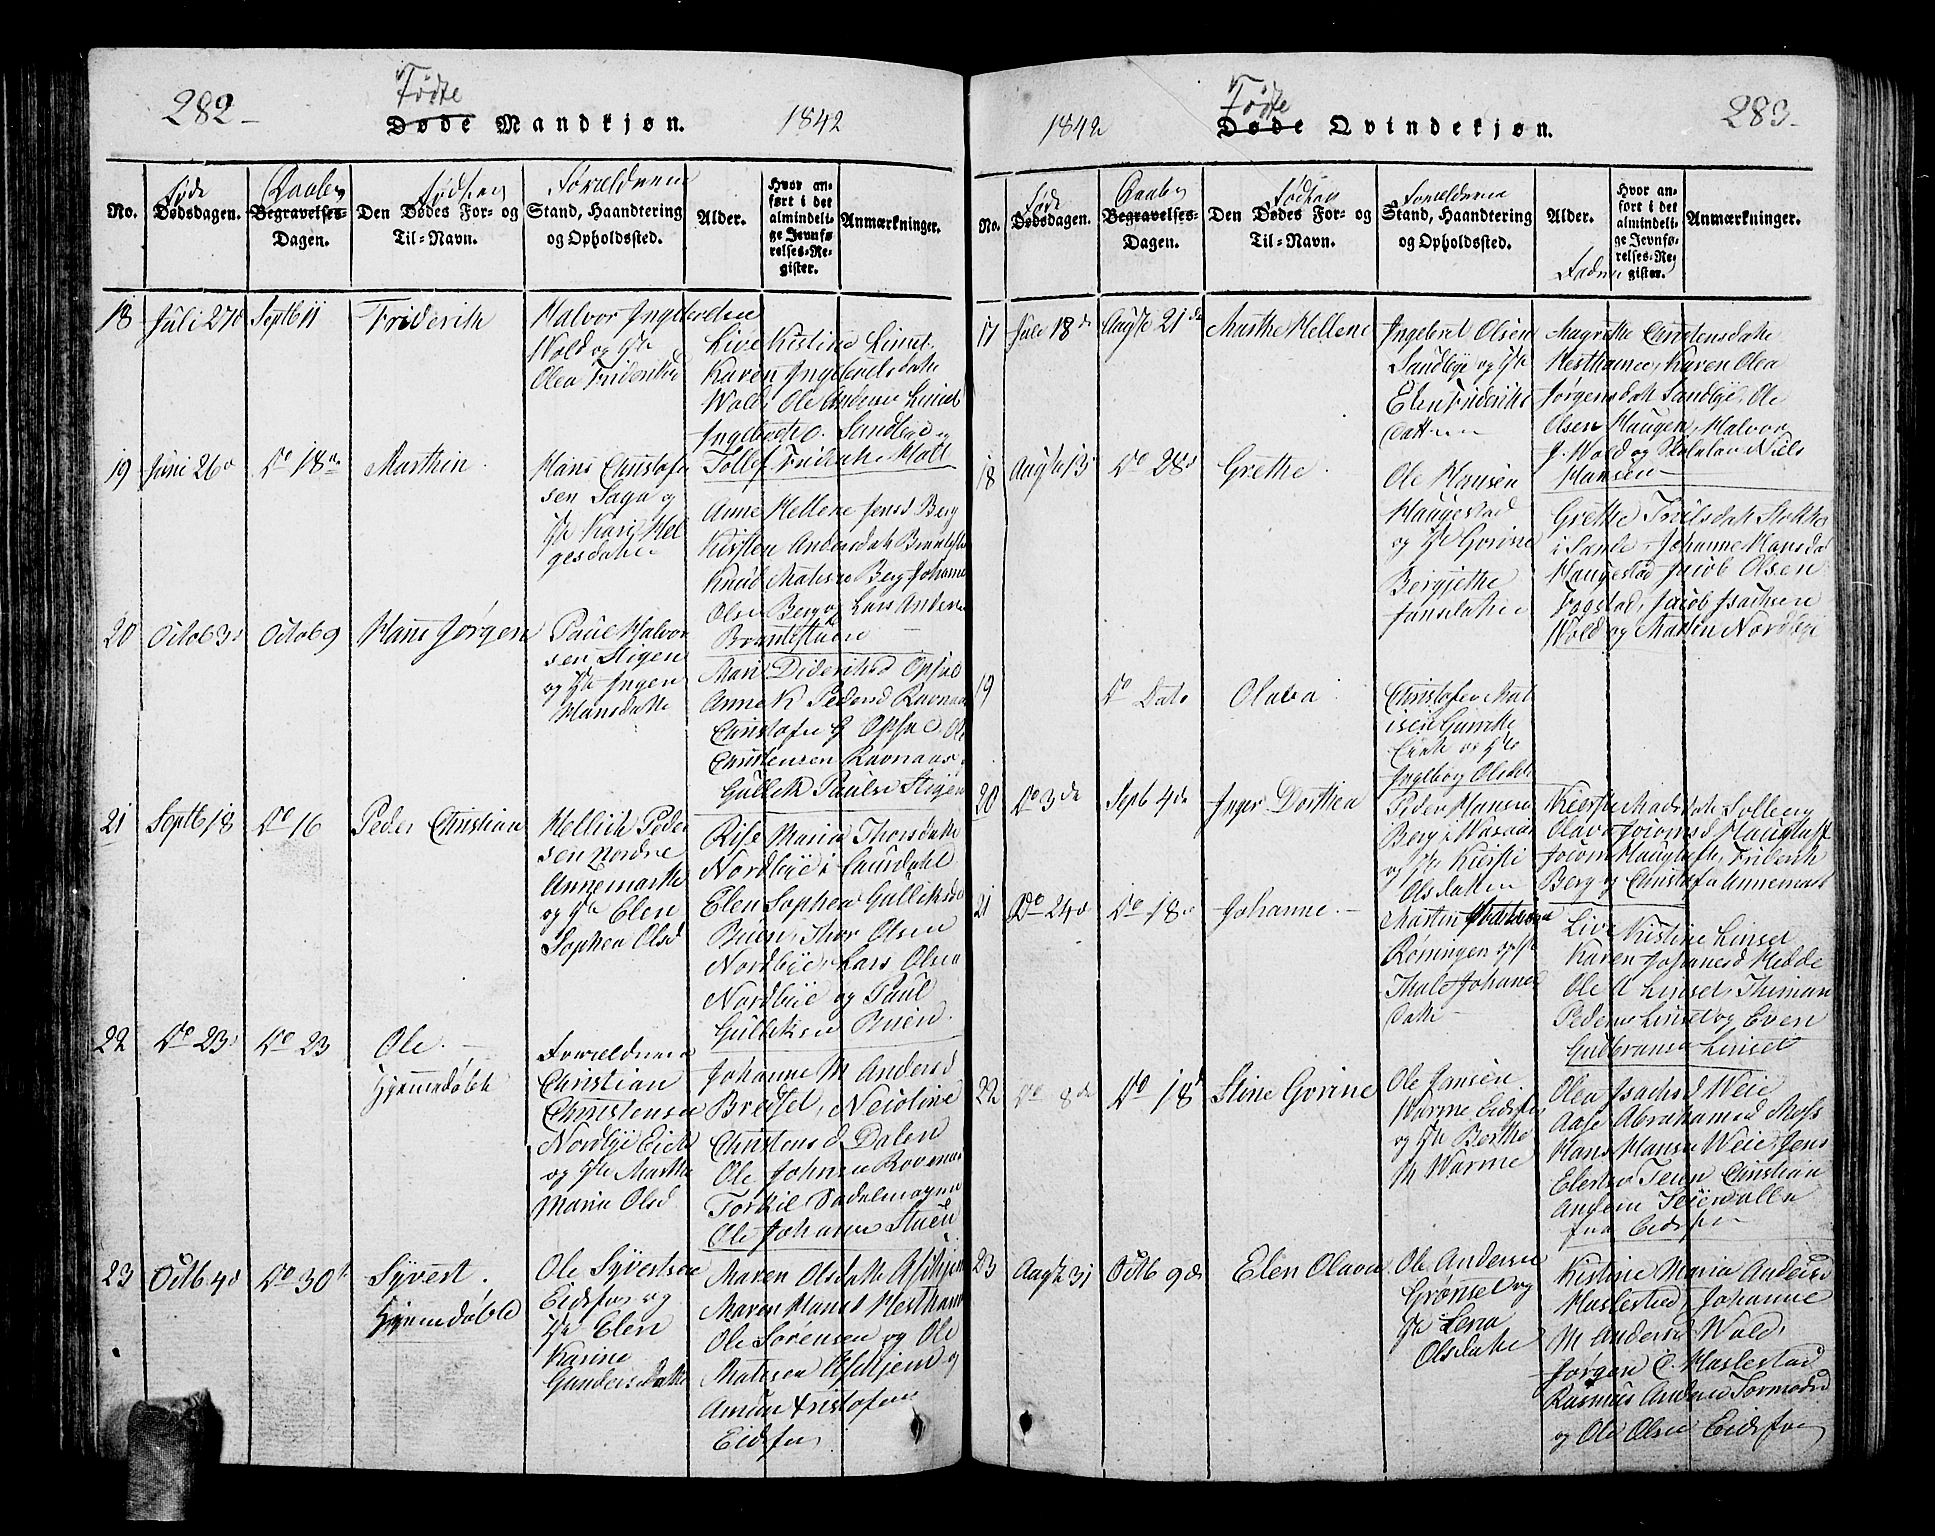 282
Fødte
Døde Mandkjøn.
1842
No.
Føde
Dødsdagen.
Daabs
Begravelses-
Dagen.
Fødtes
Den Dødes For- og
Til-Navn.
Forældrenes
Stand, Haandtering
og Opholdssted.
Alder.
Hvor an-
ført i det
almindeli-
ge Jevnfø-
relses-Re-
gister.
Anmærkninger.
18
Juli 27d
Septb 11
Friderik
Halvor Ingebretsen
Wold og H
Olea Frideriksd
Live Kistine Linset
Karen Ingebrets datter
Wold, Ole Andreas Linset
Ingebret O. Sandbye og
Tollef Frideriks Holt
19
Juni 26d
Do 18
Marthin
Hans Christofer
sen Saga og
H Kari Hel
gesdatter
Anne Hellene Jensd Berg
Kirsten Andersdatt
Knud Berg Johannes
Olse Berg og Lars Anders
20
Octob 3d
Octob 9
Hans Jørgen
Paul Halvor
sen Stigen
og H Inger
Hansdatte
Mari Dideriksd Opsal
Anne K Pedersd Ravnaas
Christofer G Opsal, Ole
Christensen Ravnaas
Gullek Paulse Stigen
21
Septb 18
Do 16
Peder Christian
Hellich Peder
sen Nordre
Annemarthe
og H Elen
Sophea Olsd
Rise Maria Thorsdatte
Nordbye i Laurdahl
Elen Sophea Gulleksd
Buen, Thor Olsen
Nordbye, Lars Olsen
Nordbye og Paul
Gulleksen Buen.
22
Do 23d
Do 23
Ole.
Hjemedøbt
Forældrene
Christian
Christensen
Nordbye Eie
og H Marthe
Maria Olsd
Johanne M Andersd
Bredsel, Neioline
Christensd Dalen
Ole Johnsen Ravnaas
Torkil Sadelmager
Ole Johannes Stuen
23
Octb 4d
Do 30t
Syvert.
Hjemedøbt
Ole Syvertsen
Eidsfos og
H Elen
Karine
Gundersdatte
Maren Olsdatte Askjem
Maren Hansd Hestham
Ole Sørensen og Ole
Matisen Askjem og
Amund Kristofer
Eidsfos
1842
Fødte
Døde Qvindekjøn.
283
No.
Føde
Dødsdagen.
Daabs
Begravelses-
Dagen.
Fødtes
Den Dødes For- og
Til-Navn.
Forældrenes
Stand, Haandtering
og Opholdssted.
Alder.
Fadrene
Hvor an-
ført i det
almindeli-
ge Jevnfø-
relses-Re-
gister.
Anmærkninger.
17
Juli 18d
Augst 21de
Marthe Hellene
Ingebret Olsen
Sandbye og H
Elen Frideriks
datten
Magrethe Christensdatte
Hesthammer, Karen Olea
Jørgensdatt Sandbye, Ole
Olsen Haugen, Halvor
J. Wold og Niels
Hansen
18
Augst 13
Do 28d
Grethe.
Ole Hansen
Haugestad
og H Gorine
Bergjethe
Jansdatte
Grethe Troilsdatt Stokke
i Sande, Johanne Hansdat
Haugestad, Jacob Olsen
Fogstad, Jacob Isachsen
Wold og Martin Nordbye
19
Do Dato
Olava
Christofer Mat
isen
og H
Ingeborg Olsdat
20
Do 3de
Septb 4de
Inger Dorthea
Peder Hansen
Berg i
og H Kiersti
Olsdatten
Kierste Madsdatt Solberg
Olava Joiomsd Haugtuft
Joiom Haugtuft, Friderik
Berg og Christofer Annemart
21
Do 24d
Do 18d
Johanne.
Martin
Røningen og H
Thale Johansd
datte
Live Kistine Linset
Karen Johanesd Hedde
Ole A Linset, Thiman
Pederse Linset og Even
Gulbransen Linset
22
Do 8de
Do 18d
Stine Gorine
Ole Jansen
Warme Eidsfos
og H Berthe
M Warme
Olea Isachsd Weie
Aase Abrahamsd Moss
Hans Hansen Weie, Jens
Christian
Andersen
fra Eidsfos
23
Augst 31
Octb 9de
Elen Olava
Ole Andersen
Grønset og
H Lena
Olsdatte
Kistine Maria Andersd
Haslestad, Johanne
M Andersd Wold,
Jørgen C. Haslestad
Rasmus Anderse Tormodsrd
og Ole Olsen Eidsfos